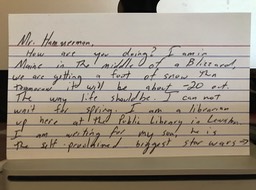 Mr. Hammerman,
How are you doing? I am in
Maine in the middle of a Blizzard,
we are getting a foot of snow then
tomorrow it will be about -20 out.
The way life should be. I can not
wait for spring. I am a librarian
up here at the Public Library in
I am writing for my son, he is
the self-proclaimed biggest star wars →